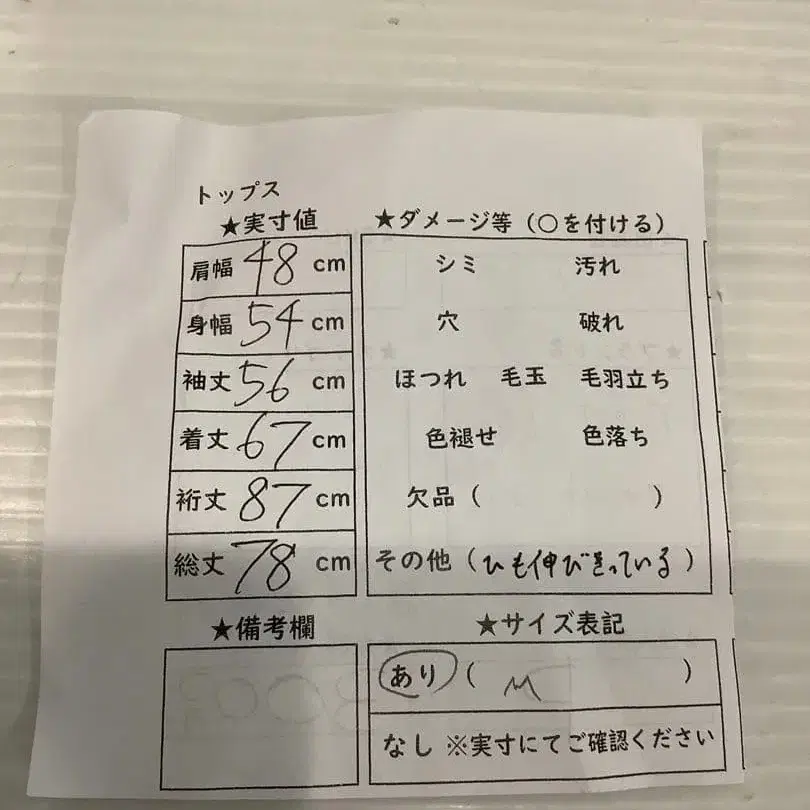 トップス
★実寸値
肩幅 48 cm
身幅 54 cm
袖丈 56 cm
着丈 67 cm
裄丈 87 cm
総丈 78 cm
★ダメージ等（○を付ける）
シミ 汚れ
穴 破れ
ほつれ 毛玉 毛羽立ち
色褪せ 色落ち
欠品（ ）
その他（ひも伸びきっている）
★備考欄
★サイズ表記
あり（ M ）
なし ※実寸にてご確認ください